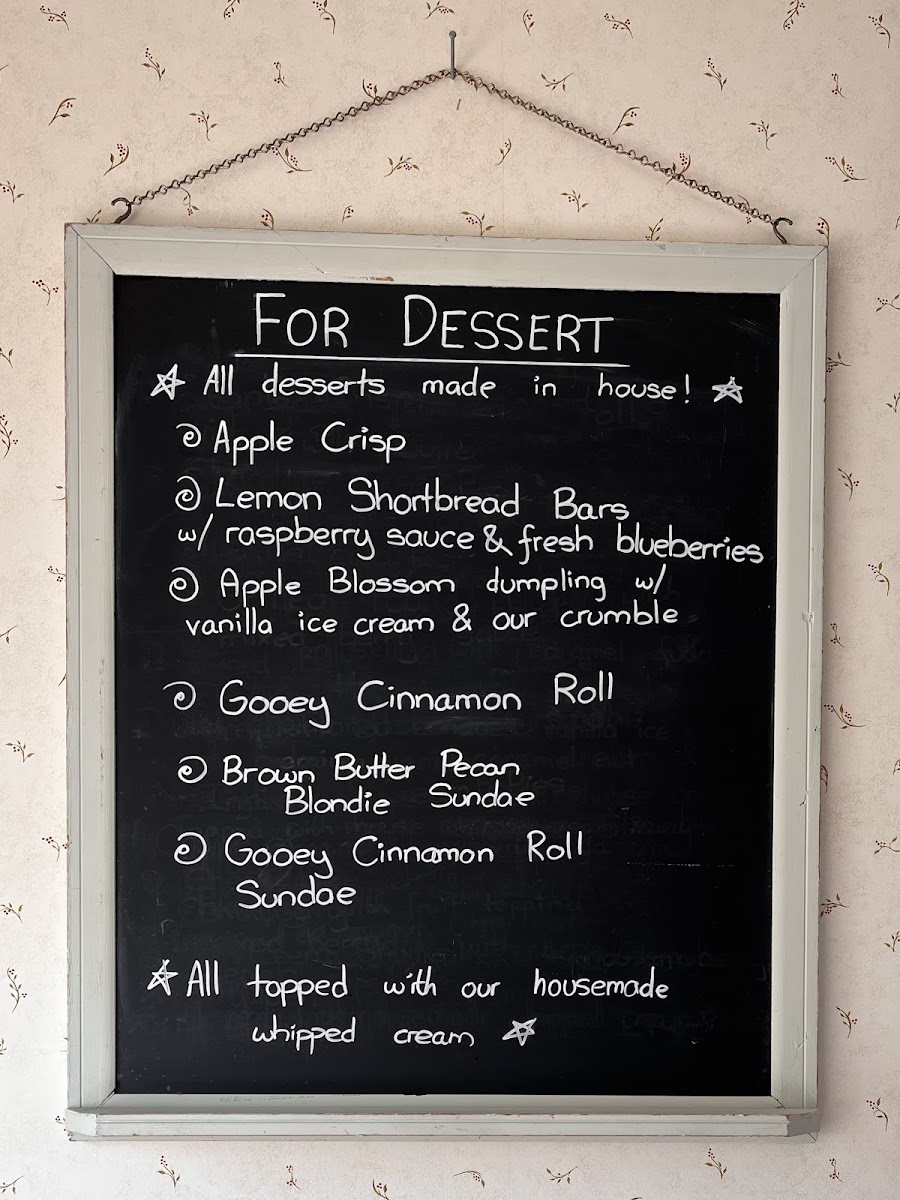 FOR DESSERT
All desserts made in house!
Apple Crisp
Lemon Shortbread Bars
w/ raspberry sauce & fresh blueberries
Apple Blossom dumpling w/
vanilla ice cream & our crumble
Gooey Cinnamon Roll
Brown Butter Pecan
Blondie Sundae
Gooey Cinnamon Roll
Sundae
All topped with our housemade
whipped cream